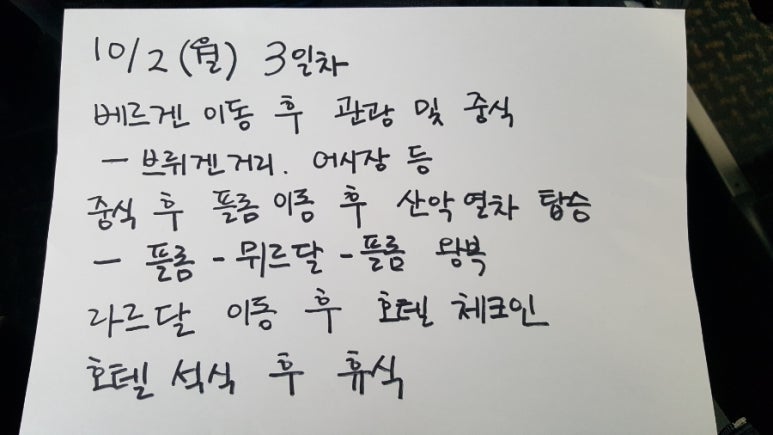 10/2 (월) 3일차
베르겐 이동 후 관광 및 중식
- 브뤼겐거리. 어시장 등
중식 후 플롬 이동 후 산악열차 탑승
- 플롬 - 뮈르달 - 플롬 왕복
라르달 이동 후 호텔 체크인
호텔 석식 후 휴식